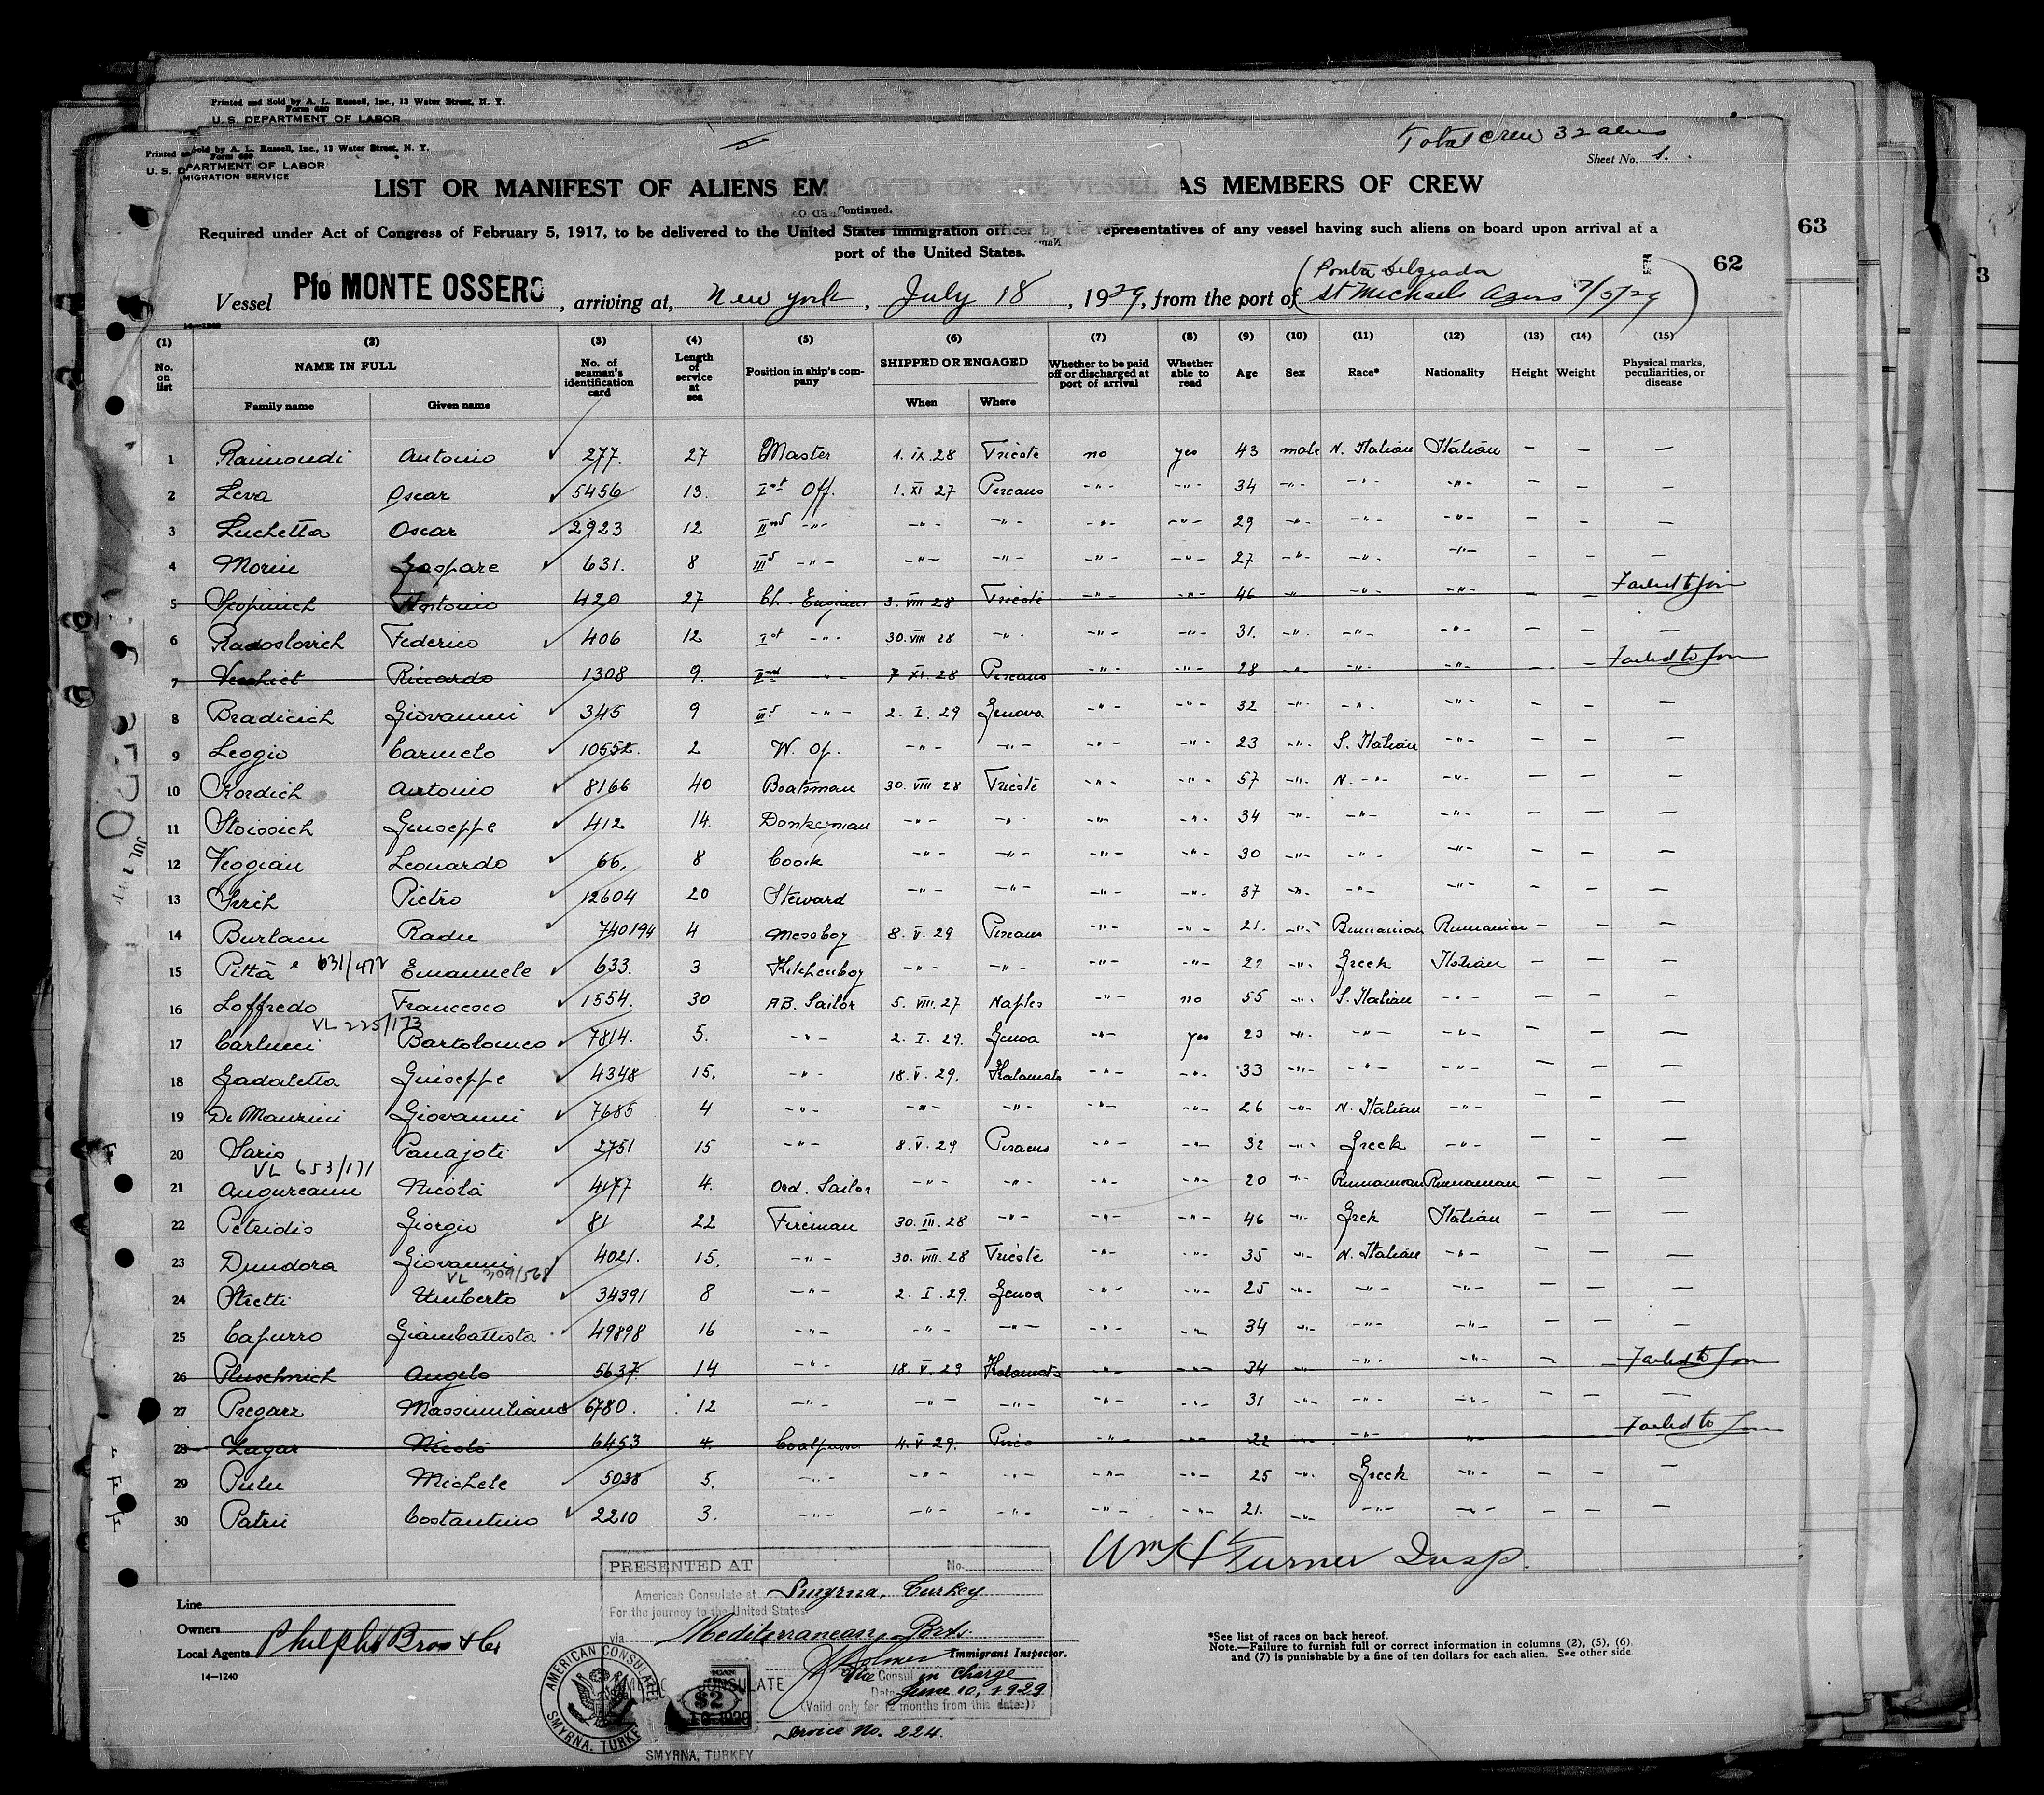 Printed and Sold by A. L. Russell, Inc., 13 Water Street, N. Y.
Form 680
U. S. DEPARTMENT OF LABOR
Printed and Sold by A. L. Russell, Inc., 13 Water Street, N. Y.
Form 680
U. S. DEPARTMENT OF LABOR
MIGRATION SERVICE
Total crew 32 aliens
Sheet No. 1.
LIST OR MANIFEST OF ALIENS EMPLOYED ON THE VESSEL AS MEMBERS OF CREW
Continued.
Required under Act of Congress of February 5, 1917, to be delivered to the United States immigration officer by the representatives of any vessel having such aliens on board upon arrival at a
port of the United States.
63
62
3
Vessel Pfo MONTE OSSERO, arriving at, New York, July 18, 1929, from the port of (Ponta Delgada St Michaels Azores 7/5/29)
14—1240
(1) (2) (3) (4) (5) (6) (7) (8) (9) (10) (11) (12) (13) (14) (15)
No. on list NAME IN FULL Family name Given name No. of seaman's identification card Length of service at sea Position in ship's company SHIPPED OR ENGAGED When Where Whether to be paid off or discharged at port of arrival Whether able to read Age Sex Race* Nationality Height Weight Physical marks, peculiarities, or disease
1 Raimondi Antonio 277. 27 Master 1. IX. 28 Trieste no yes 43 male N. Italian Italian — — —
2 Leva Oscar 5456 13. Ist Off. 1. XI 27 Pireaus -"- -"- 34 -"- -"- -"- — — —
3 Luchetta Oscar 2923 12 IInd -"- -"- -"- -"- -"- 29 -"- -"- -"- — — —
4 Morin Gaspare 631. 8 III -"- -"- -"- -"- -"- 27 -"- -"- -"- — — —
5 Scopinich Antonio 420 27 Ch. Engineer 3. VIII 28 Trieste -"- -"- 46 -"- -"- -"- — Failed to join
6 Radoslovich Federico 406 12 Ist -"- 30. VIII 28 -"- -"- -"- 31. -"- -"- -"- — — —
7 Riccardo 1308 9. IInd -"- 7 XI. 28 Pireaus -"- -"- 28 -"- -"- -"- — — Failed to join
8 Bradicich Giovanni 345 9 III -"- 2. I. 29 Genova -"- -"- 32 -"- -"- -"- — — —
9 Leggio Carmelo 10552. 2 W. Op. -"- -"- -"- -"- 23 -"- S. Italian -"- — — —
10 Kordich Antonio 8166 40 Boatsman 30. VIII 28 Trieste -"- -"- 57 -"- N. -"- -"- — — —
11 Stoissich Giuseppe 412 14. Donkeyman -"- -"- -"- -"- 34 -"- -"- -"- — — —
12 Veggian Leonardo 66. 8 Coock -"- -"- -"- -"- 30 -"- -"- -"- — — —
13 Pietro 12604 20 Steward -"- -"- -"- -"- 37 -"- -"- -"- — — —
14 Burlacu Radu 740194 4 Messboy 8. V. 29 Pireaus -"- -"- 21. -"- Rumanian Rumanian — — —
15 Pittà 631/472 Emanuele 633. 3 Kitchenboy -"- -"- -"- -"- 22 -"- Greek Italian — — —
16 Loffredo Francesco 1554. 30 AB. Sailor 5. VIII. 27 Naples -"- no 55 -"- S. Italian -"- — — —
VL 225/173
17 Carlucci Bartolomeo 7814. 5. -"- 2. I. 29. Genoa -"- yes 23 -"- -"- -"- — — —
18 Gadaletta Guiseppe 4348 15. -"- 18. V. 29. Kalamata -"- -"- 33 -"- -"- -"- — — —
19 De Manzini Giovanni 7685 4 -"- -"- -"- -"- -"- 26 -"- N. Italian -"- — — —
20 Saris Panajoti 2751 15 -"- 8. V. 29 Piraeus -"- -"- 32 -"- Greek -"- — — —
VL 653/171
21 Angureanu Nicola 4177 4. Ord. Sailor -"- -"- -"- -"- 20 -"- Rumanian Rumanian — — —
22 Petridis Giorgio 81 22 Fireman 30. III. 28 -"- -"- -"- 46 -"- Grek Italian — — —
23 Dundora Giovanni 4021. 15. -"- 30. VIII. 28 Trieste -"- -"- 35 -"- N. Italian -"- — — —
VL 309/568
24 Stretti Umberto 34391 8 -"- 2. I. 29. Genoa -"- -"- 25 -"- -"- -"- — — —
25 Capurro Giambattista 49898 16 -"- -"- -"- -"- -"- 34 -"- -"- -"- — — —
26 Pluschnich Angelo 5637 14 -"- 18. V. 29 Kalamata -"- -"- 34 -"- -"- -"- — — Failed to join
27 Pregarz Massimiliano 6780. 12 -"- -"- -"- -"- -"- 31 -"- -"- -"- — — —
28 Zugar Nicolò 6453 4. Coalpasser 4. V. 29. -"- -"- 22 -"- -"- -"- Failed to join
29 Pulu Michele 5038 5. -"- -"- -"- -"- -"- 25 -"- Greek -"- — — —
30 Patrii Costantino 2210 3. -"- -"- -"- -"- -"- 21. -"- -"- -"- — — —
Wm H Turner Insp.
PRESENTED AT No.
American Consulate at Smyrna, Turkey
For the journey to the United States
via Mediterranean Ports.
Immigrant Inspector.
Vice Consul in charge
Date June 10, 1929
(Valid only for 12 months from this date.)
Service No. 224.
AMERICAN CONSULATE
SMYRNA, TURKEY
AMERICAN CONSULATE
$2
SMYRNA, TURKEY
Line
Owners
Local Agents Phelps Bros & Co
14—1240
*See list of races on back hereof.
Note.—Failure to furnish full or correct information in columns (2), (5), (6)
and (7) is punishable by a fine of ten dollars for each alien. See other side